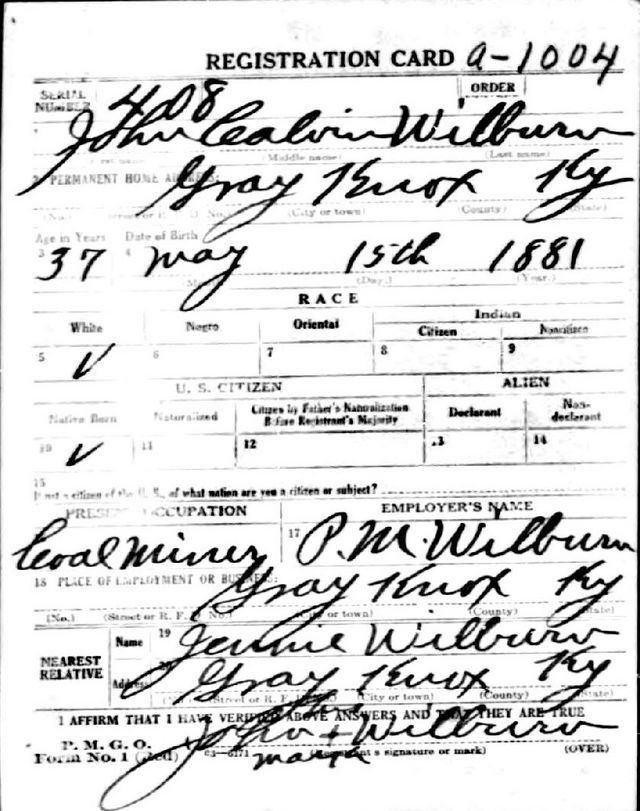 REGISTRATION CARD a-1004
SERIAL NUMBER 408 ORDER
John Calvin Wilburn
(Middle name) (Last name)
PERMANENT HOME ADDRESS:
Gray Knox Ky
(No.) (City or town) (County) (State)
Age in Years Date of Birth
3 37 4 May 15th 1881
(Day.) (Year.)
RACE
White Negro Oriental Indian
Citizen Noncitizen
5 ✓ 6 7 8 9
U. S. CITIZEN ALIEN
Native Born Naturalized Citizen by Father's Naturalization Before Registrant's Majority Declarant Non-declarant
10 ✓ 11 12 13 14
15
If not a citizen of the U. S., of what nation are you a citizen or subject?
PRESENT OCCUPATION EMPLOYER'S NAME
Coal Miner 17 P.M. Wilburn
18 PLACE OF EMPLOYMENT OR BUSINESS:
Gray Knox Ky
(No.) (Street or R. F. D. No.) (City or town) (County) (State)
NEAREST RELATIVE
Name 19 Jennie Wilburn
Address 20 Gray Knox Ky
(No.) (Street or R. F. D. No.) (City or town) (County) (State)
I AFFIRM THAT I HAVE VERIFIED ABOVE ANSWERS AND THAT THEY ARE TRUE
P. M. G. O.
Form No. 1 (Red) c3-6171 John + Wilburn
mark
(Registrant's signature or mark) (OVER)